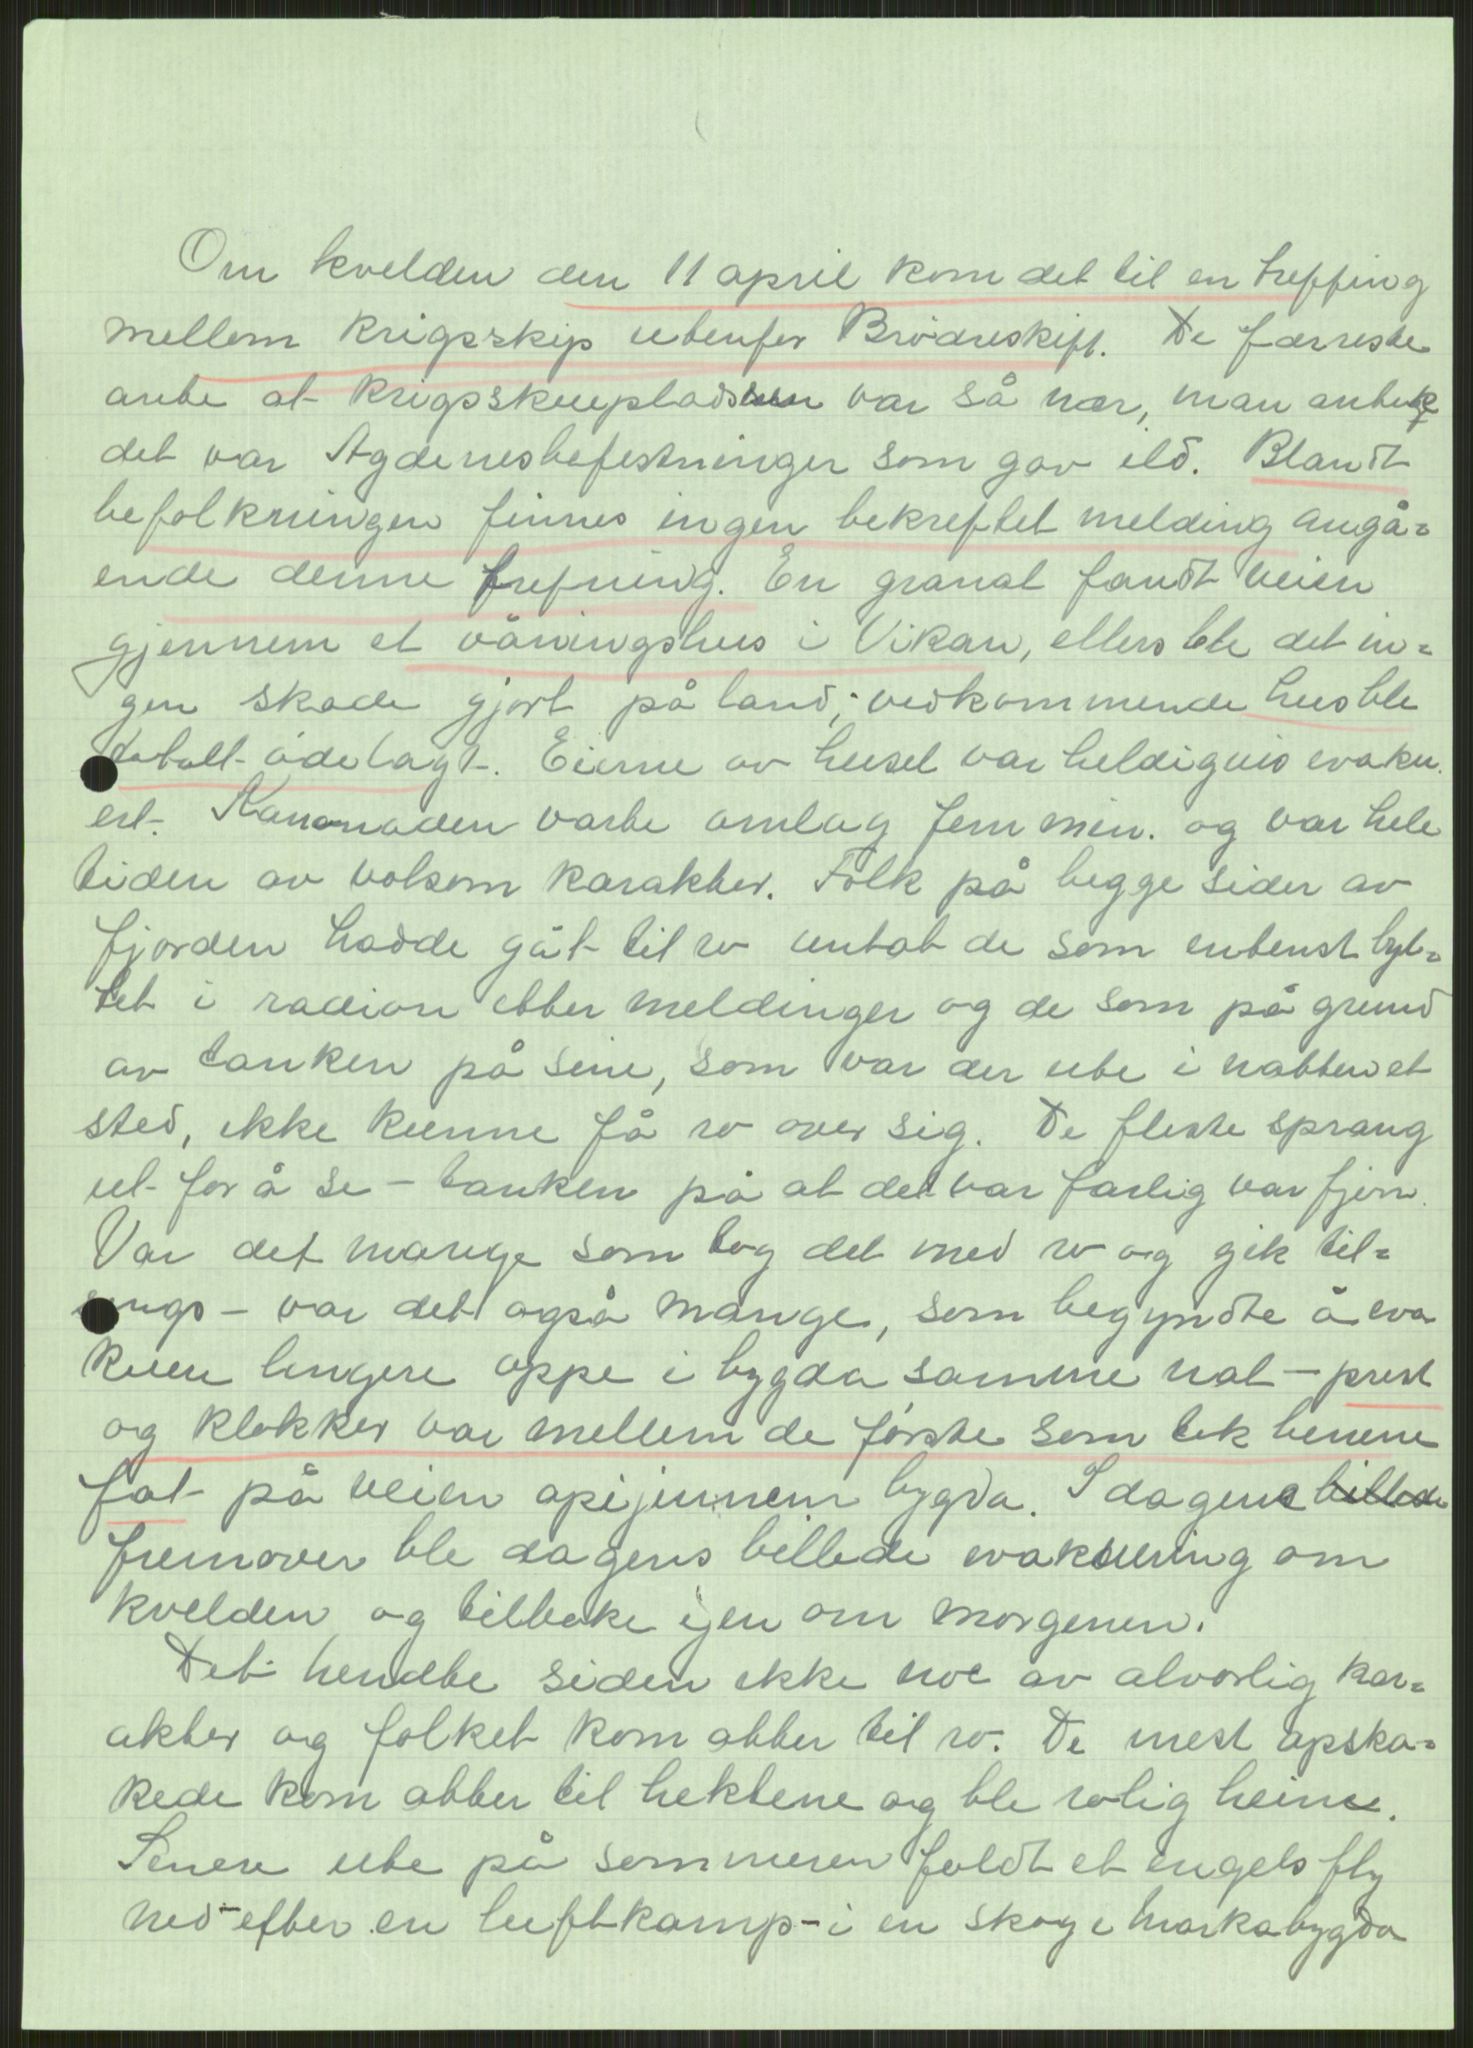 Om kvelden den 11 april kom det til en trefning
mellem krigsskip utenfor Brødreskift. De færreste
ante at krigsskuepladsen var så nær, man antok
det var Agdenesbefestninger som gav ild. Blandt
befolkningen finnes ingen bekreftet melding angå=
ende denne trefning. En granat fandt veien
gjennem et våningshus i Vikan, ellers ble det in=
gen skade gjort på land; vedkommende hus ble
totalt ødelagt. Eierne av huset var heldigvis evaku
ert. Kanonaden varte omlag fem min. og var hele
tiden av volsom karakter. Folk på begge sider av
fjorden hadde gåt til ro untat de som entenst lyt=
tet i radion etter meldinger og de som på grund
av tanken på sine, som var der ute i natten et
sted, ikke kunne få ro over sig. De fleste sprang
ut for å se – tanken på at det var farlig var fjern.
Var det mange som tog det med ro og gik til=
sengs – var det også mange, som begyndte å eva
kuere lengere oppe i bygda samme nat – prest
og klokker var mellem de første som tok benene
fat på veien opijennem bygda. I dagene billede
fremover ble dagens billede evakuering om
kvelden og tilbake igen om morgenen.
Det hendte siden ikke noe av alvorlig kar=
akter og folket kom atter til ro. De mest opska=
kede kom atter til hektene og ble rolig heime.
Senere ute på sommeren foldt et engels fly
ned – efter en luftkamp – i en skog i Markabygda